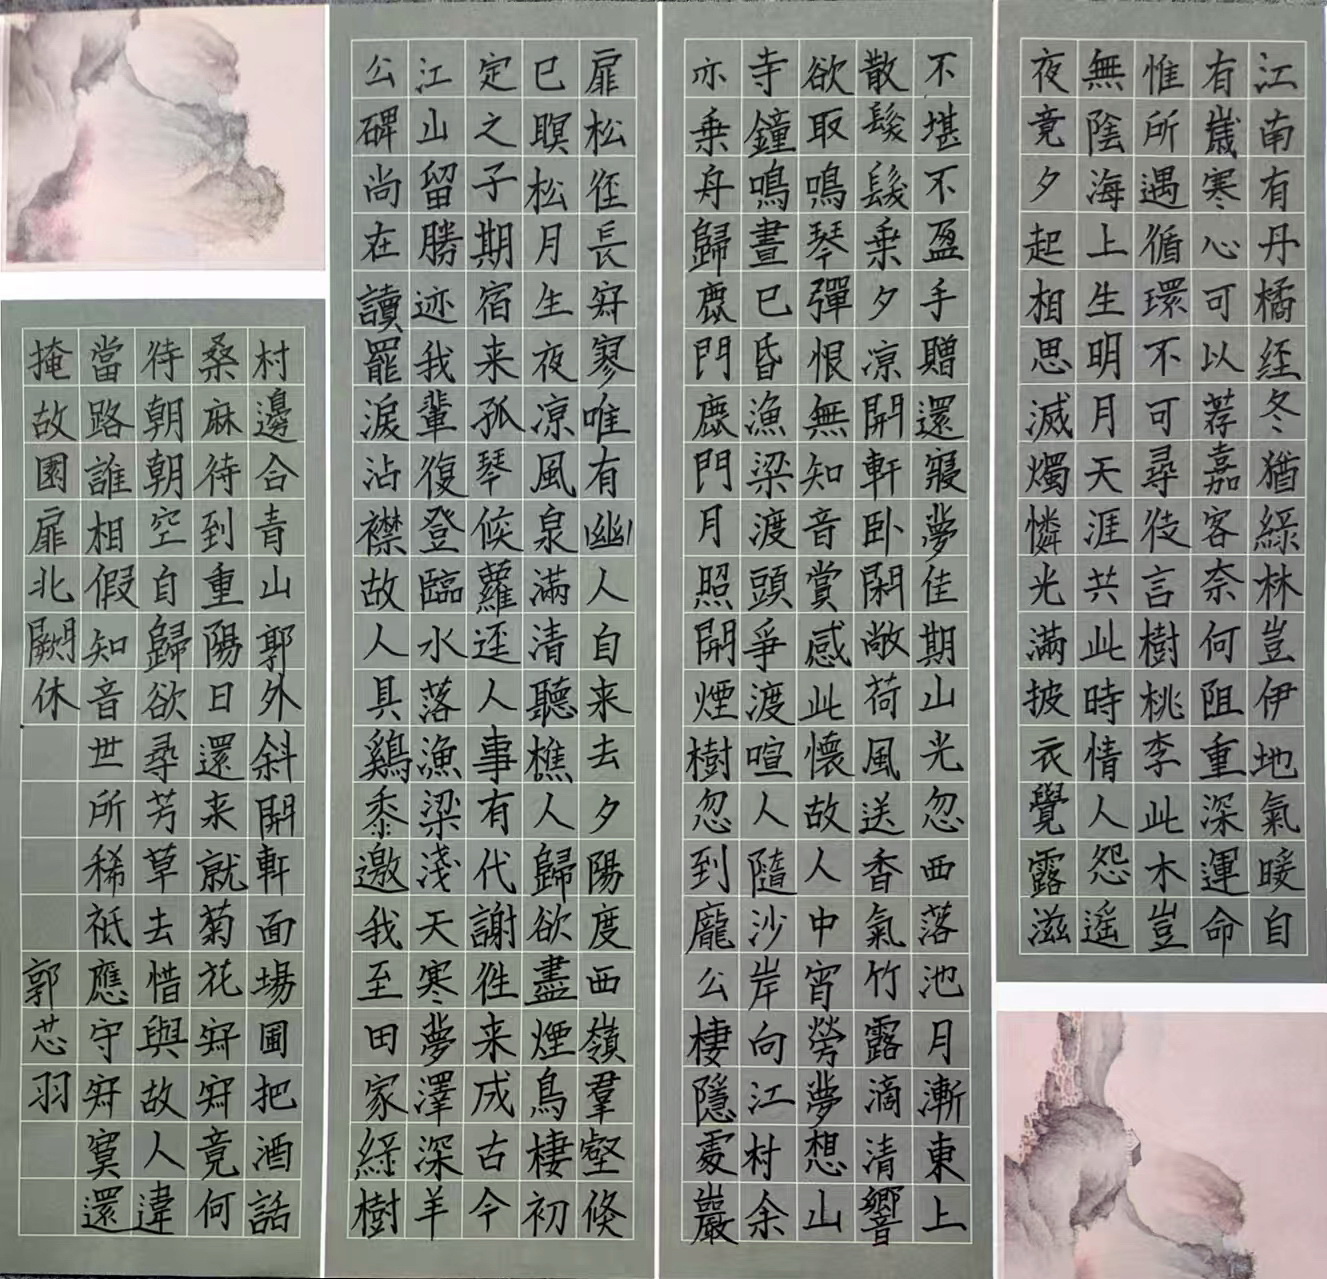 江南有丹橘经冬猶綠林豈伊地氣暖自
有歲寒心可以荐嘉客奈何阻重深運命
惟所遇循環不可尋徒言樹桃李此木豈
無陰海上生明月天涯共此時情人怨遥
夜竟夕起相思滅燭憐光滿披衣覺露滋
不堪不盈手贈還寢夢佳期山光忽西落池月漸東上
散髮髮乗夕凉開軒卧閑敞荷風送香氣竹露滴清響
欲取鳴琴彈恨無知音賞感此懷故人中宵勞夢想山
寺鐘鳴晝已昏漁梁渡頭爭渡喧人隨沙岸向江村余
亦乗舟歸鹿門鹿門月照開煙樹忽到龐公棲隱處巖
扉松徑長寂寥唯有幽人自来去夕陽度西嶺羣壑倏
已暝松月生夜凉風泉滿清聽樵人歸欲盡煙鳥棲初
定之子期宿来孤琴候蘿逕人事有代謝往来成古今
江山留勝迹我輩復登臨水落漁梁淺天寒夢澤深羊
公碑尚在讀罷淚沾襟故人具鷄黍邀我至田家綠樹
村邊合青山郭外斜開軒面場圃把酒話
桑麻待到重陽日還来就菊花寂寂竟何
待朝朝空自歸欲尋芳草去惜與故人違
當路誰相假知音世所稀祗應守寂寞還
掩故園扉北闕休
郭芯羽